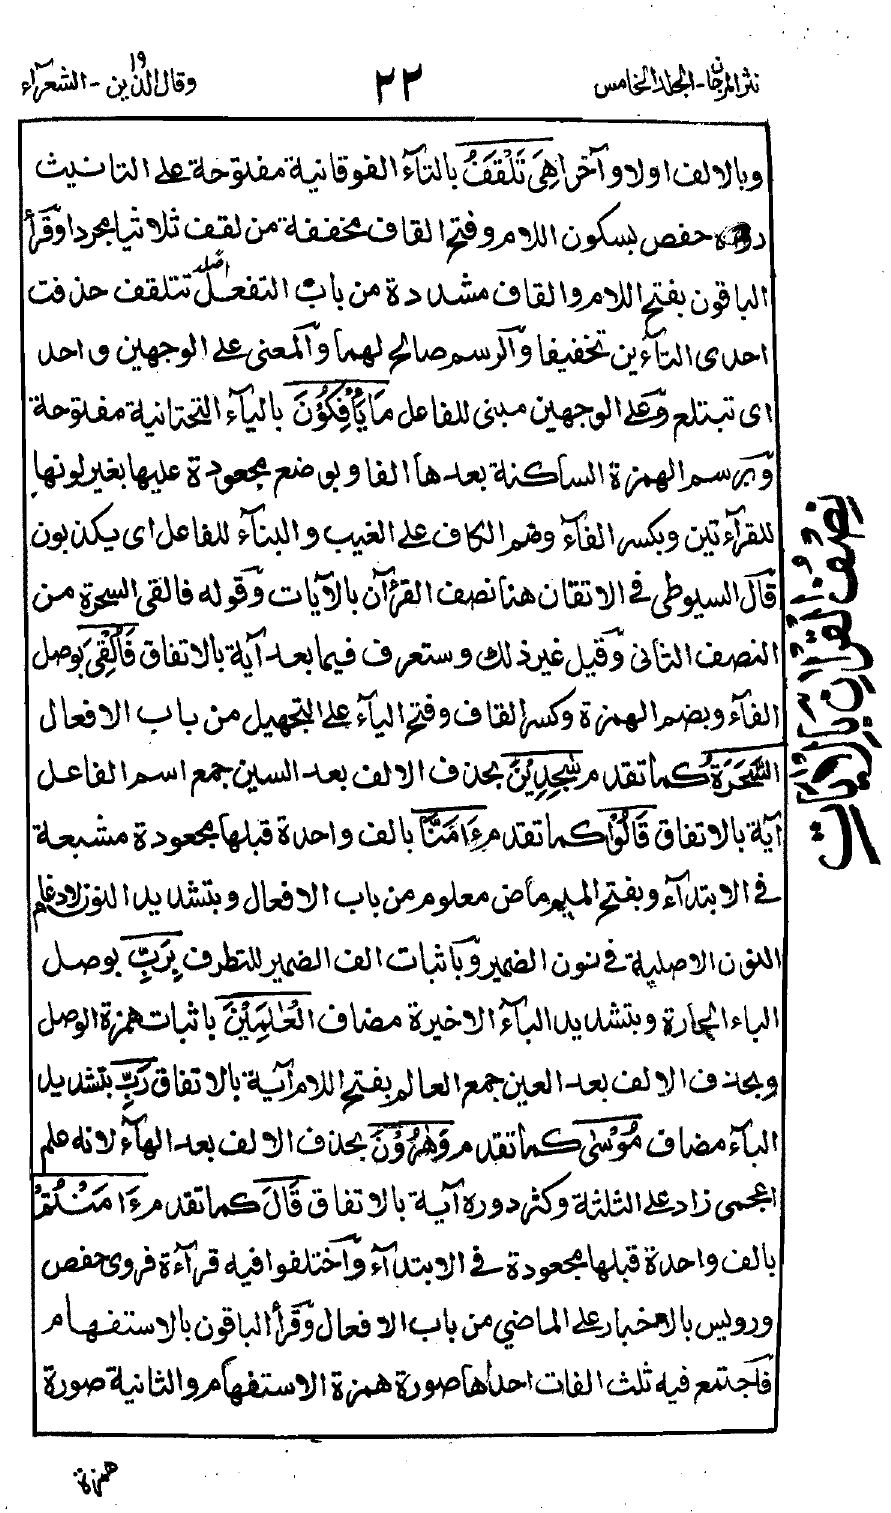 نثر المرجان - المجلد الخامس
٢٢
وقال الذين ١٩ - الشعرآء
وبالالف اولا وآخرا هِىَ تَلْقَفُ بالتآء الفوقانية مفتوحة على التانيث
حفص بسكون اللام وفتح القاف مخففة من لقف ثلاثيا مجردا وقرأ
الباقون بفتح اللام والقاف مشددة من باب التفعل اصله تتلقف حذفت
احدى التآءين تخفيفا والرسم صالح لهما والمعنى على الوجهين واحد
اى تبتلع وعلى الوجهين مبنى للفاعل مَا يَأْفِكُوْنَ باليآء التحتانية مفتوحة
وبرسم الهمزة الساكنة بعدها الفا وبوضع مجعودة عليها بغير لونها
للقرآءتين وبكسر الفآء وضم الكاف على الغيب والبنآء للفاعل اى يكذبون
قال السيوطى فى الاتقان هنا نصف القرأن بالآيات وقوله فالقى السحرة من
النصف الثانى وقيل غير ذلك وستعرف فيما بعد آية بالاتفاق فَاُلْقِىَ بوصل
الفآء وبضم الهمزة وكسر القاف وفتح اليآء على التجهيل من باب الافعال
السَّحَرَةُ كما تقدم سٰجِدِيْنَ بحذف الالف بعد السين جمع اسم الفاعل
آية بالاتفاق قَالُوْا كما تقدم ءَامَنَّا بالف واحدة قبلها مجعودة مشبعة
فى الابتدآء وبفتح الميم ماض معلوم من باب الافعال وبتشديد النون لادغام
النون الاصلية فى نون الضمير وباثبات الف الضمير للتطرف بِرَبِّ بوصل
الباء الجارة وبتشديد البآء الاخيرة مضاف الْعٰلَمِيْنَ باثبات همزة الوصل
وبحذف الالف بعد العين جمع العالم بفتح اللام آية بالاتفاق رَبِّ بتشديد
البآء مضاف مُوْسٰى كما تقدم وَهٰرُوْنَ بحذف الالف بعد الهآء لانه علم
اعجمى زاد على الثلثة وكثر دوره آية بالاتفاق قَالَ كما تقدم ءَامَنْتُمْ
بالف واحدة قبلها مجعودة فى الابتدآء واختلفوا فيه قرآءة فروى حفص
ورويس بالاخبار على الماضي من باب الافعال وقرأ الباقون بالاستفهام
فاجتمع فيه ثلث الفات احدٰها صورة همزة الاستفهام والثانية صورة
همزة
نصف القرآن بالآيات